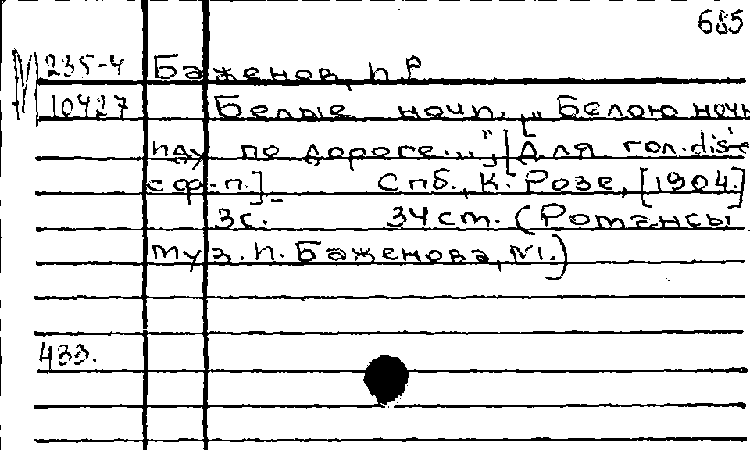 685
М 235-4 Баженов, П. Р.
10427 Белые ночи. „Белою ночь
иду по дороге...", [Для гол. dis-e
с ф.-п.] Спб., К. Розе, [1904.]
3с. 34 ст. (Романсы
муз. П. Баженова, №1.)
433.